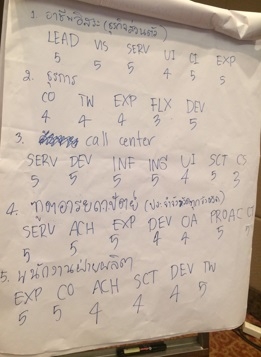 1. อาชีพอิสระ (ธุรกิจส่วนตัว)
LEAD VIS SERV UI CI EXP
5 5 5 4 5 5
2. ธุรการ
CO TW EXP FLX DEV
4 4 4 3 5
3. call center
SERV DEV INF INS UI SCT CS
5 5 5 5 4 5 3
4. ทูตอารยสถาปัตย์
SERV ACH EXP DEV OA PROAC
5 5 5 4 4 5
5. พนักงานฝ่ายผลิต
EXP CO ACH SCT DEV TW
5 5 4 4 4 5